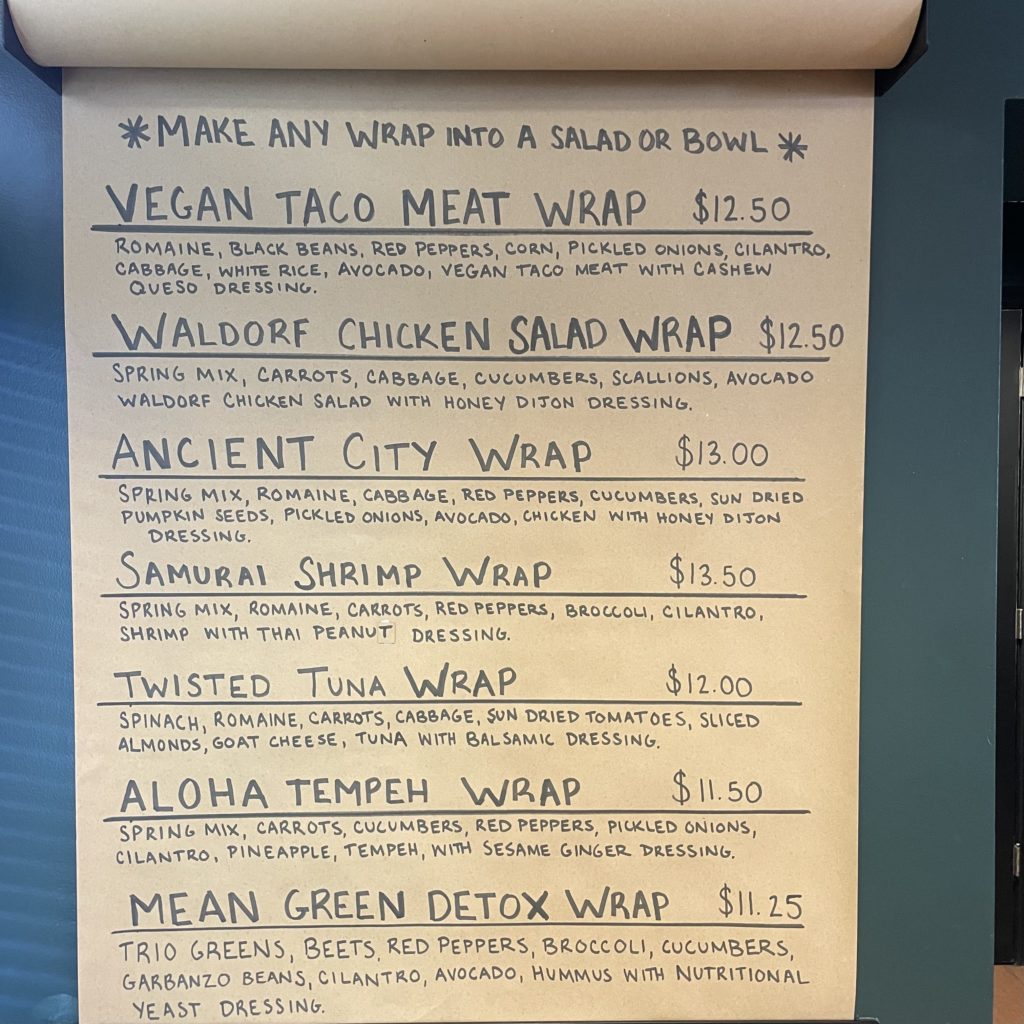 *MAKE ANY WRAP INTO A SALAD OR BOWL*
VEGAN TACO MEAT WRAP $12.50
ROMAINE, BLACK BEANS, RED PEPPERS, CORN, PICKLED ONIONS, CILANTRO,
CABBAGE, WHITE RICE, AVOCADO, VEGAN TACO MEAT WITH CASHEW
QUESO DRESSING.
WALDORF CHICKEN SALAD WRAP $12.50
SPRING MIX, CARROTS, CABBAGE, CUCUMBERS, SCALLIONS, AVOCADO
WALDORF CHICKEN SALAD WITH HONEY DIJON DRESSING.
ANCIENT CITY WRAP $13.00
SPRING MIX, ROMAINE, CABBAGE, RED PEPPERS, CUCUMBERS, SUN DRIED
PUMPKIN SEEDS, PICKLED ONIONS, AVOCADO, CHICKEN WITH HONEY DIJON
DRESSING.
SAMURAI SHRIMP WRAP $13.50
SPRING MIX, ROMAINE, CARROTS, RED PEPPERS, BROCCOLI, CILANTRO,
SHRIMP WITH THAI PEANUT DRESSING.
TWISTED TUNA WRAP $12.00
SPINACH, ROMAINE, CARROTS, CABBAGE, SUN DRIED TOMATOES, SLICED
ALMONDS, GOAT CHEESE, TUNA WITH BALSAMIC DRESSING.
ALOHA TEMPEH WRAP $11.50
SPRING MIX, CARROTS, CUCUMBERS, RED PEPPERS, PICKLED ONIONS,
CILANTRO, PINEAPPLE, TEMPEH, WITH SESAME GINGER DRESSING.
MEAN GREEN DETOX WRAP $11.25
TRIO GREENS, BEETS, RED PEPPERS, BROCCOLI, CUCUMBERS,
GARBANZO BEANS, CILANTRO, AVOCADO, HUMMUS WITH NUTRITIONAL
YEAST DRESSING.